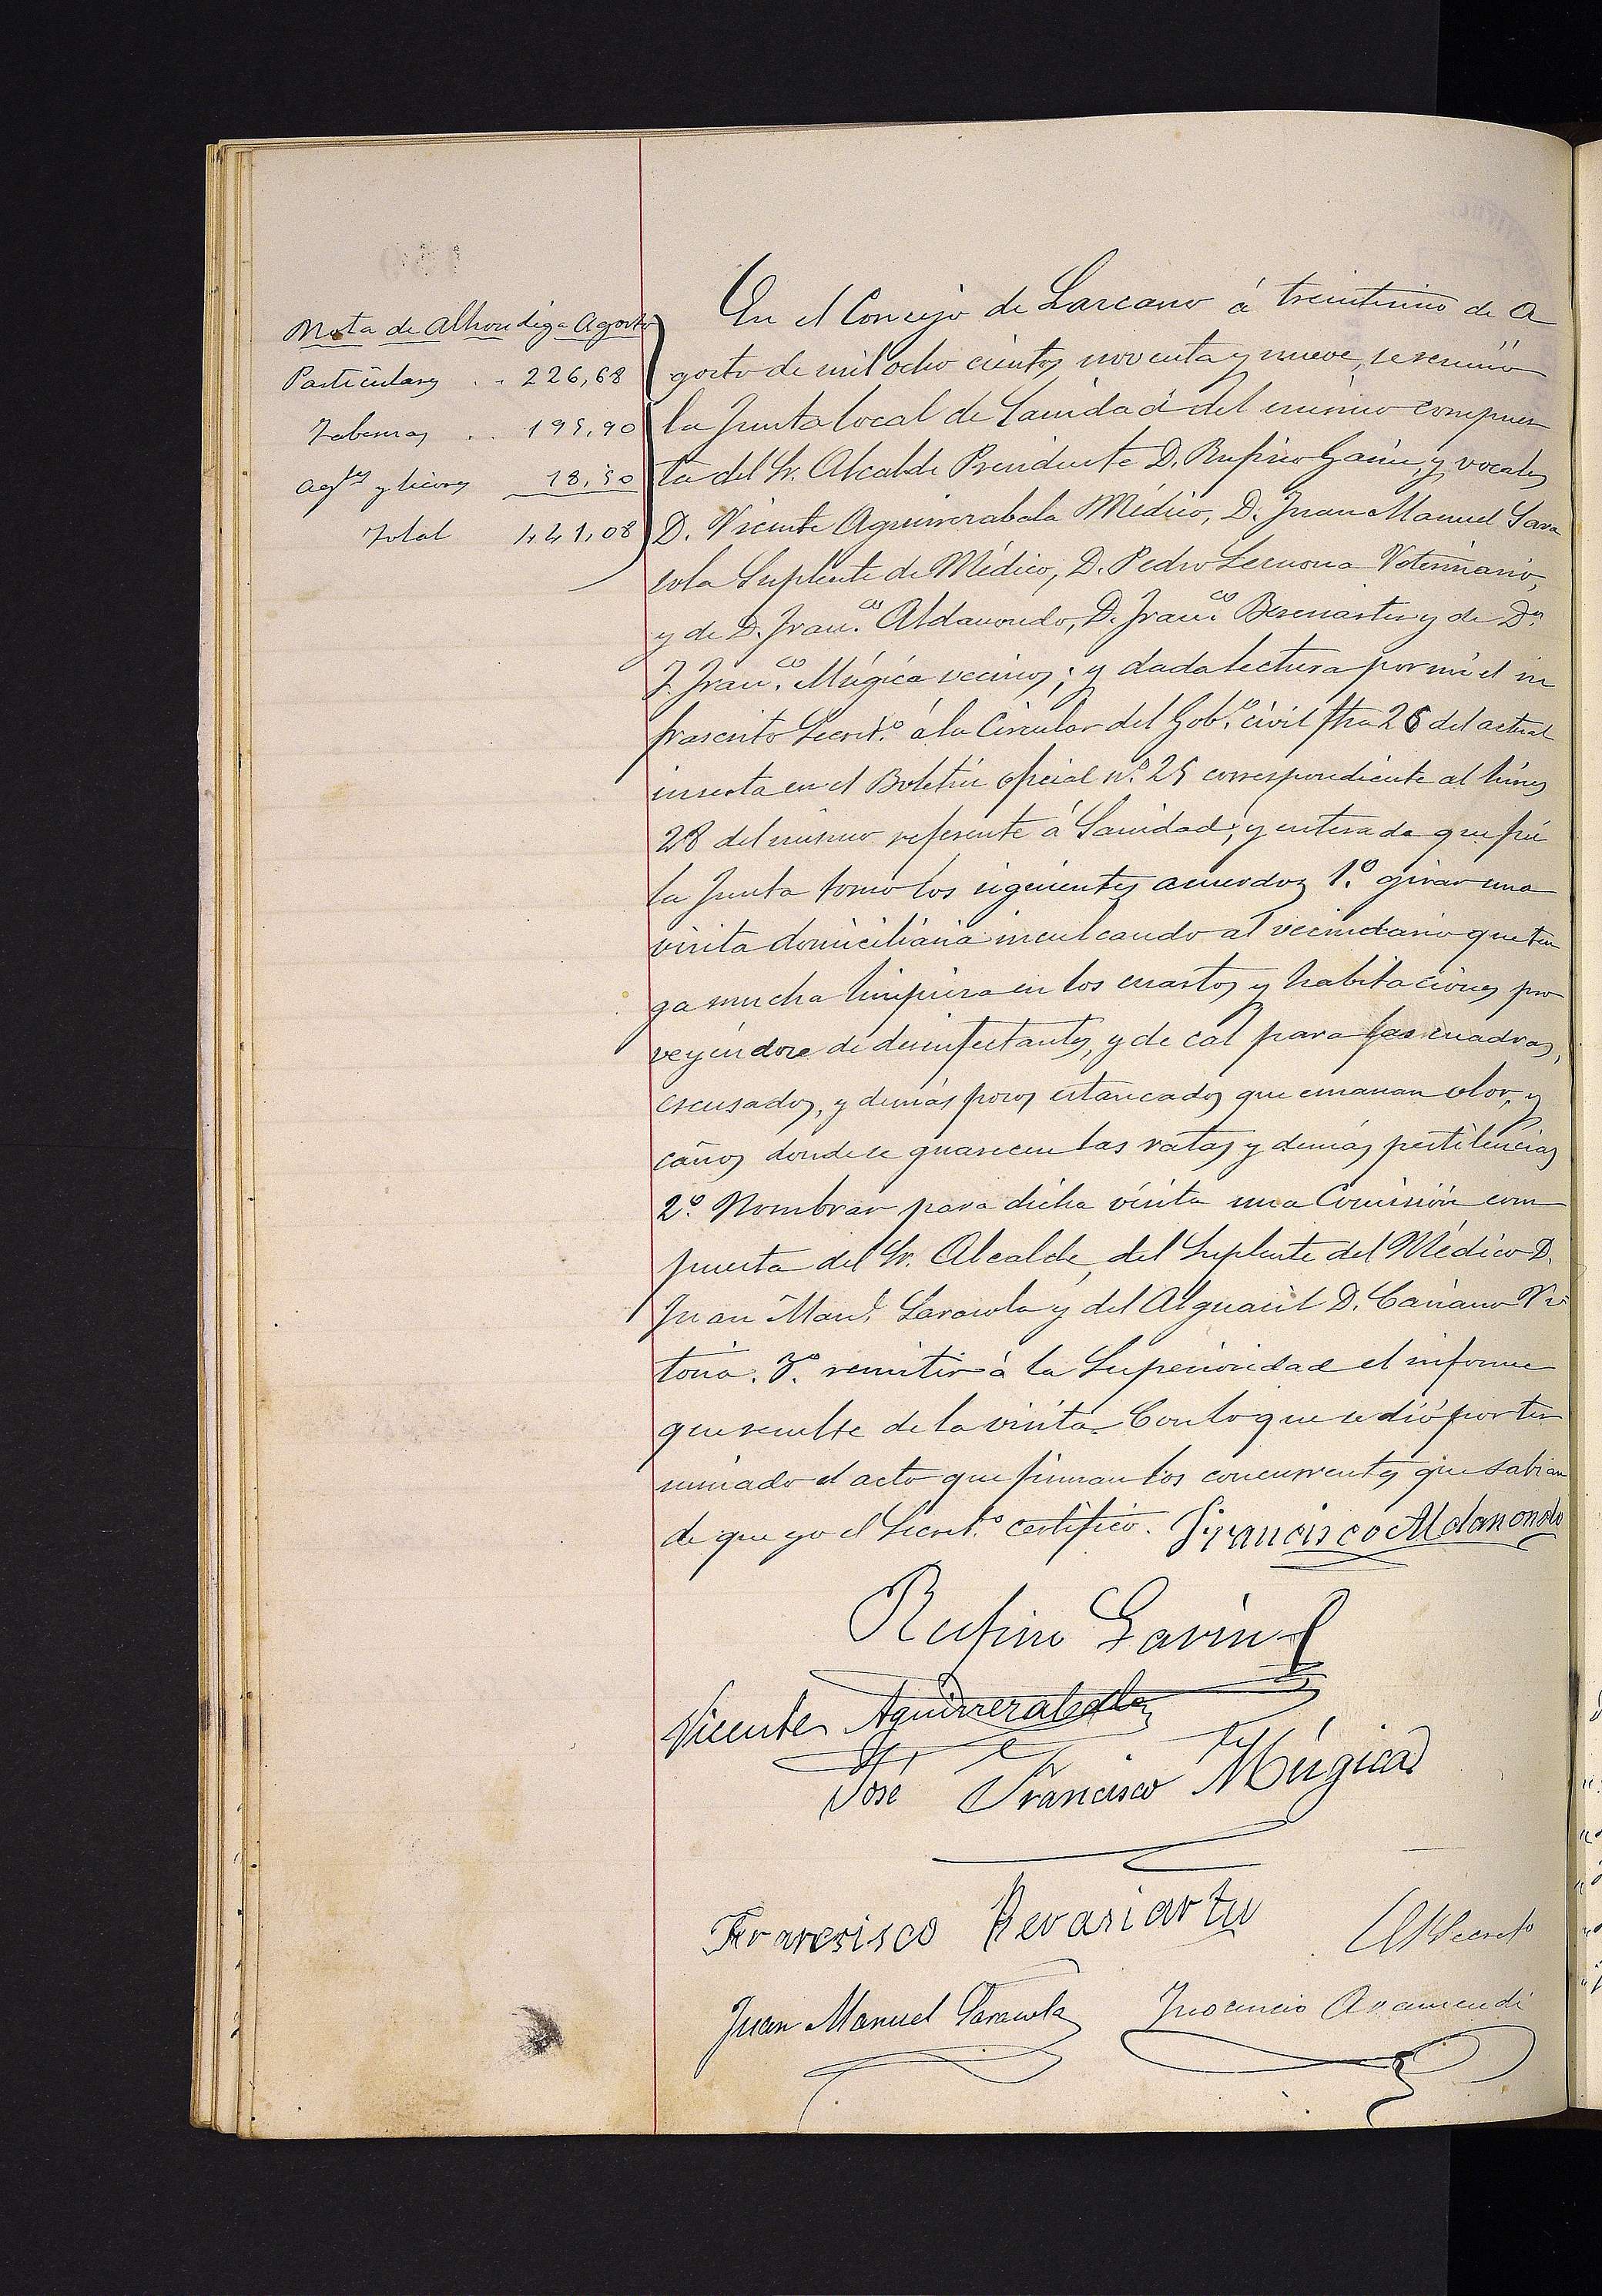 Nota de Alhondiga Agosto
Particulares . . 226,68
Tabernas . . 195,90
Agtes y licores 18,50
Total 441,08
En el Concejo de Lazcano á treintiuno de A
gosto de mil ocho cientos noventa y nueve, se reunió
la Junta local de Sanidad del mismo compues
ta del Sr. Alcalde Presidente D. Rufino Garin, y vocales
D. Vicente Aguirrezabala Médico, D. Juan Manuel Sara
sola Suplente de Médico, D. Pedro Lecuona Veterinario,
y de D. Franco. Aldanondo, D. Franco. y de Dn
J. Franco. Múgica vecinos; y dada lectura por mi el in
frascrito Secreto. á la Circular del Gobo. civil fha 26 del actual
inserta en el Boletin oficial no. 25 correspondiente al lunes
28 del mismo referente á Sanidad; y enterada que fué
la Junta tomo los siguientes acuerdos 1o. girar una
visita domiciliaria inculcando al vecindario que ten
ga mucha limpieza en los cuartos y habitaciones pro
veyéndose de desinfectantes, y de cal para las cuadras,
escusados, y demás pozos estancados que emanan olor, y
caños donde se guarecen las ratas y demás pestilencias
2o. Nombrar para dicha visita una Comisión com
puesta del Sr. Alcalde, del Suplente del Médico D.
Juan Manl. Sarasola y del Alguacil D. Casiano Vi
toria. 3o. remitir á la Superioridad el informe
que resulte de la visita. Con lo que se dió por ter
minado el acto que firman los concurrentes que sabian
de que yo el Secreto. certifico. Francisco Aldanondo
Rufino Garin
Vicente Aguirrezabala
José Francisco Múgica
Francisco
El Secreto
Juan Manuel Sarasola Inocencio Aramendi